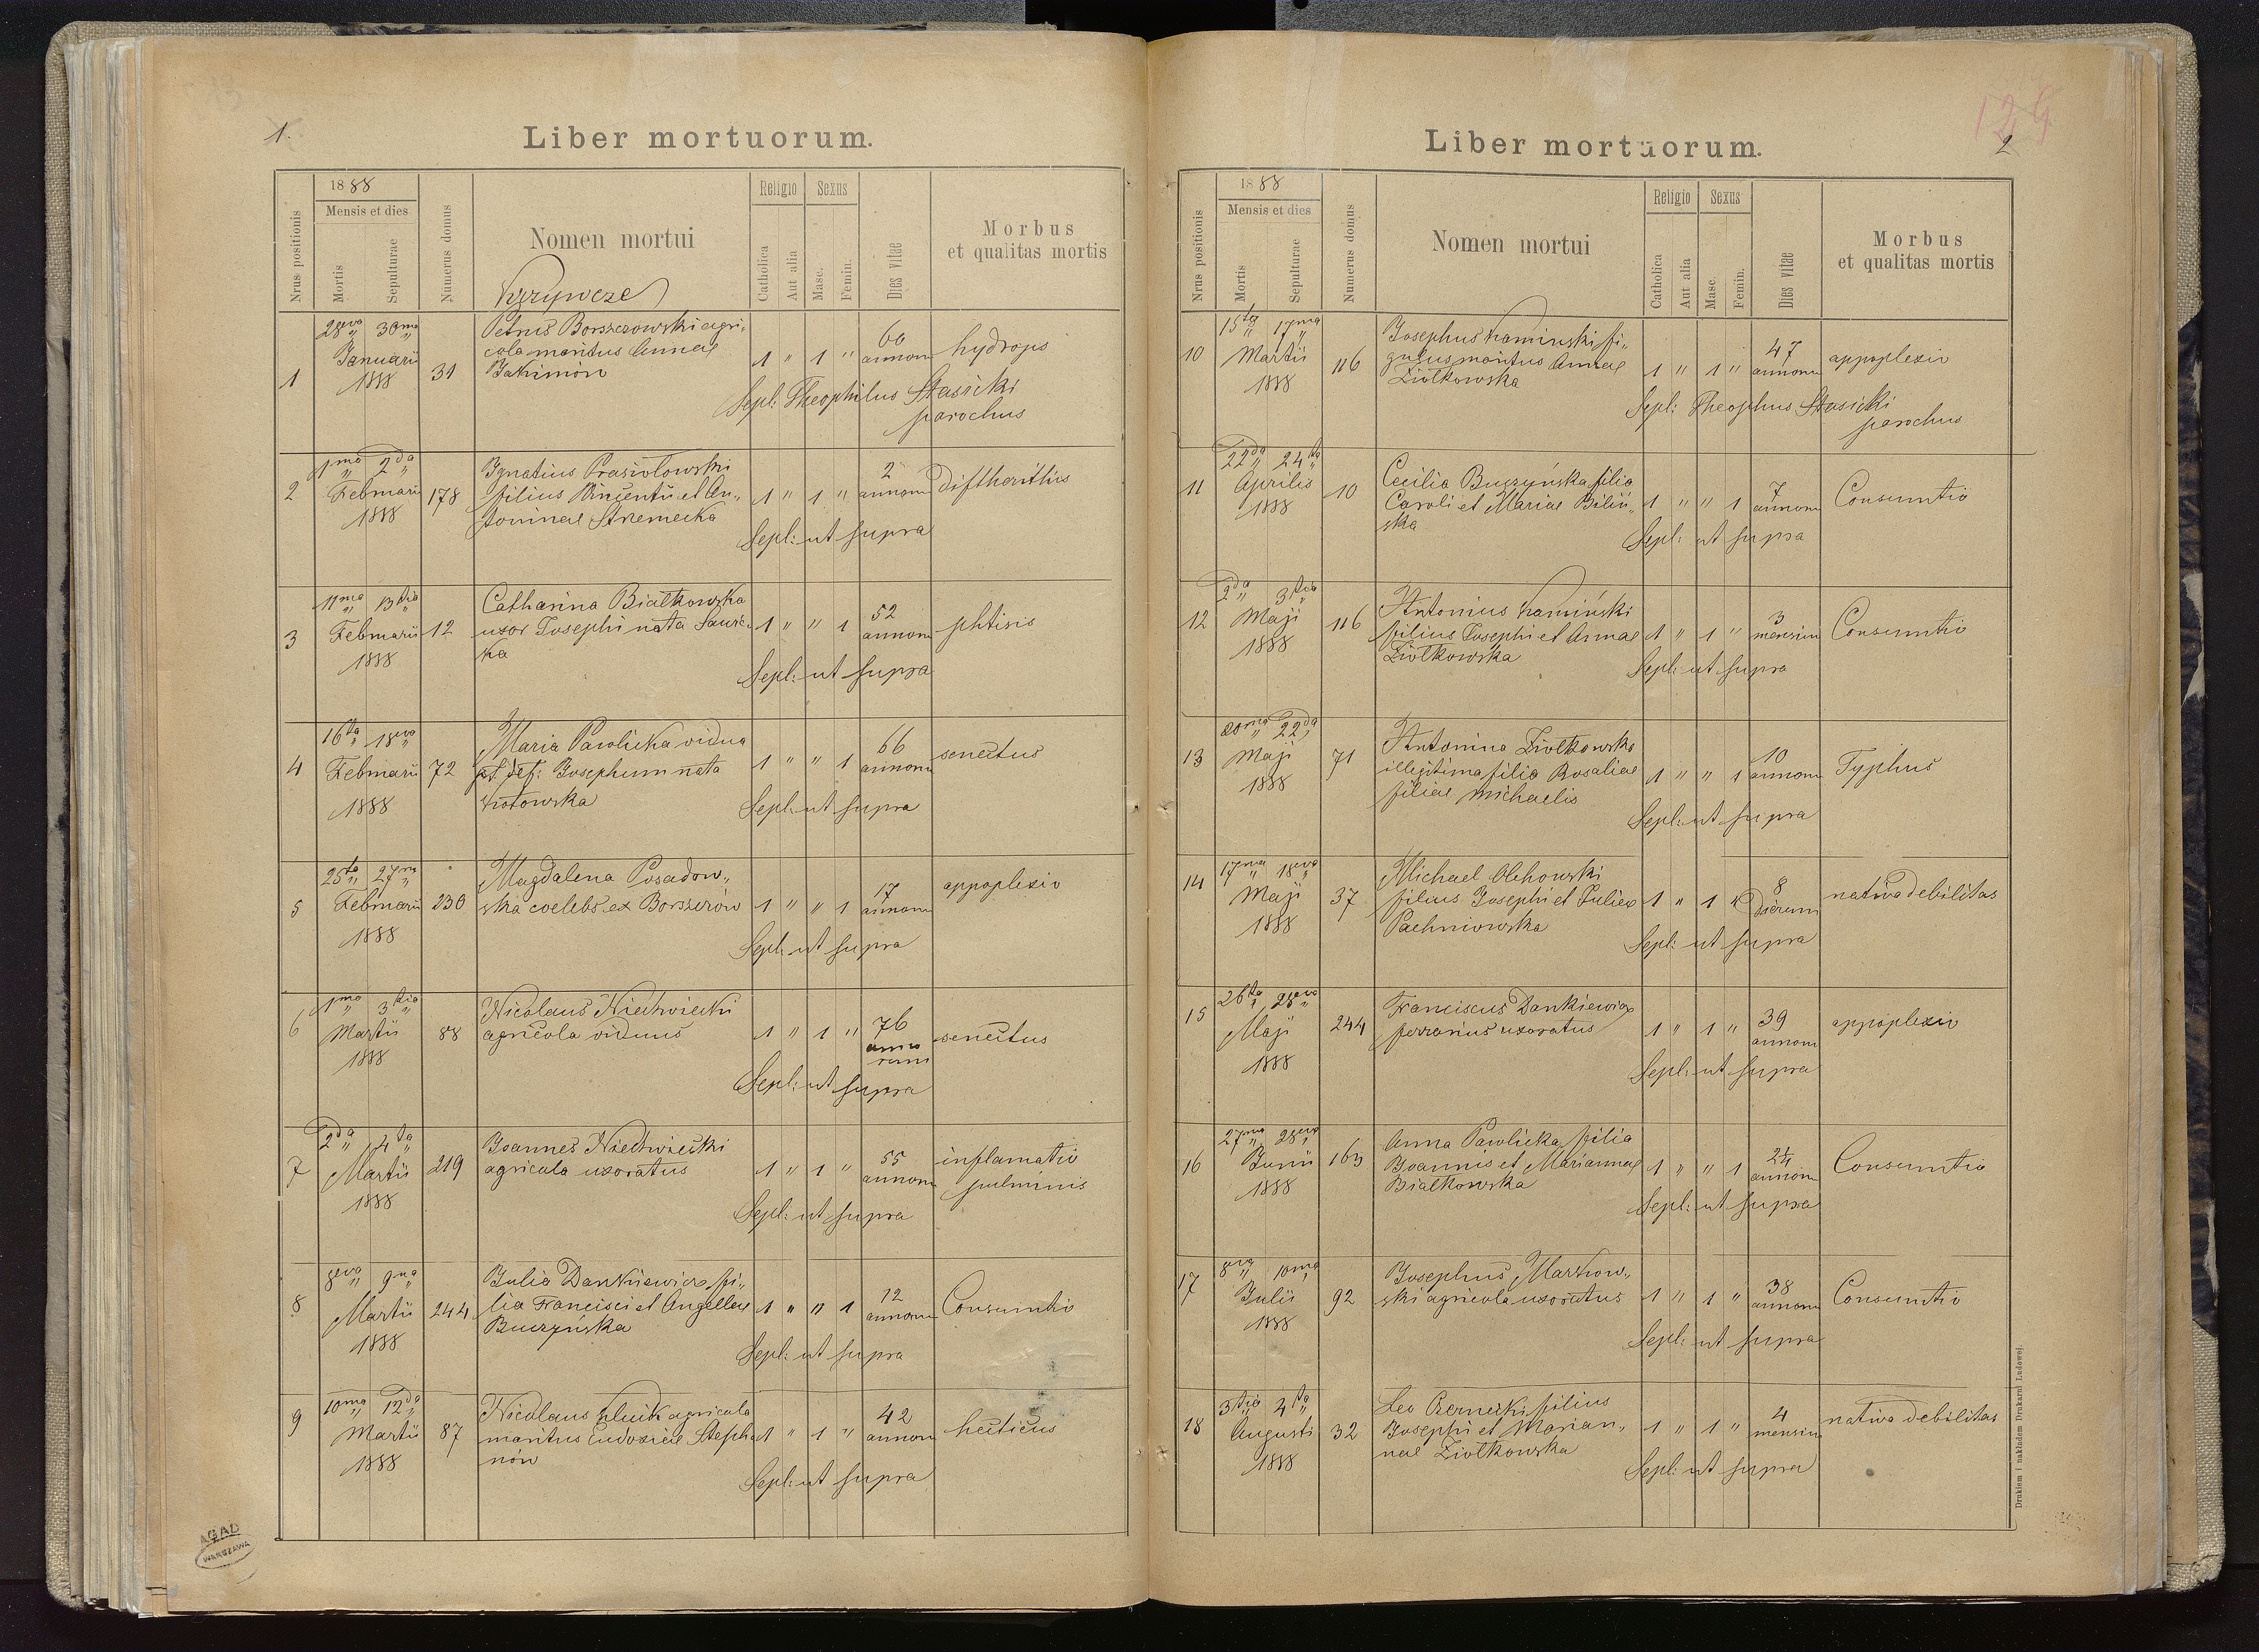 1.
Liber mortuorum.
Nrus positionis
1888
Mensis et dies
Mortis
Sepulturae
Numerus domus
Nomen mortui
Krzywcze
Religio
Catholica
Aut alia
Sexus
Masc.
Femin.
Dies vitae
Morbus
et qualitas mortis
28va 30ma
Januarii
1888
1
31
Petrus Borszczowski agri-
cola maritus Annae
Jakimow
1 " 1 "
60
annorum
hydrops
Sepl: Theophilus Stasicki
parochus
1ma 2da
2 Februarii 178
1888
Ignatius
filius Vincentii et An-
toninae Strzemecka
1 " 1 "
2
annorum
diftheritius
Sepl: ut supra
11ma 13tia
3 Februarii 12
1888
Catharina Białkowska
uxor Josephi nata
ka
1 " " 1
52
annorum
phtisis
Sepl: ut supra
16ta 18va
4 Februarii 72
1888
Maria Pawlicka vidua
pt def: Josephum nata
1 " " 1
66
annorum
senectus
Sepl: ut supra
25ta 27ma
5 Februarii 230
1888
Magdalena Posadow-
ska coelebs ex Borszczów
1 " " 1
17
annorum
appoplexio
Sepl: ut supra
1ma 3tia
6 Martii 88
1888
Nicolaus Niedzwiecki
agricola viduus
1 " 1 "
76
anno
rum
senectus
Sepl: ut supra
2da 4ta
7 Martii 219
1888
Joannes Niedzwiecki
agricola uxoratus
1 " 1 "
55
annorum
inflamatio
pulminis
Sepl: ut supra
8va 9na
8 Martii 244
1888
Julia Dankiewicz fi-
lia Francisci et Angellae
Buczyńska
1 " " 1
12
annorum
Consumtio
Sepl: ut supra
10ma 12da
9 Martii 87
1888
Nicolaus Hluik agricola
maritus Eudoxiae Stepha
nów
1 " 1 "
42
annorum
hecticus
Sepl: ut supra
AGAD
WARSZAWA
124
2
Liber mortuorum.
Nrus positionis
1888
Mensis et dies
Mortis
Sepulturae
Numerus domus
Nomen mortui
Religio
Catholica
Aut alia
Sexus
Masc.
Femin.
Dies vitae
Morbus
et qualitas mortis
15ta 17ma
10 Martii 116
1888
Josephus Kaminski fi-
gulus maritus Annae
Ziółkowska
1 " 1 "
47
annorum
appoplexio
Sepl: Theophus Stasicki
parochus
22da 24ta
11 Aprilis 10
1888
Cecilia Buczyńska filia
Caroli et Mariae Biliń-
ska
1 " " 1
7
annorum
Consumtio
Sepl: ut supra
2da 3tia
12 Maji 116
1888
Antonius Kamiński
filius Josephi et Annae
Ziółkowska
1 " 1 "
3
mensium
Consumtio
Sepl: ut supra
20ma 22da
13 Maji 71
1888
Antonina Ziółkowska
illegitima filia Rosaliae
filiae Michaelis
1 " " 1
10
annorum
Typhus
Sepl: ut supra
17ma 18va
14 Maji 37
1888
Michael Olchowski
filius Josephi et Juliae
Pachniowska
1 " 1 "
8
dierum
nativa debilitas
Sepl: ut supra
26ta 28va
15 Maji 244
1888
Franciscus Dankiewicz
ferrarius uxoratus
1 " 1 "
39
annorum
appoplexio
Sepl: ut supra
27ma 28va
16 Junii 163
1888
Anna Pawlicka filia
Joannis et Mariannae
Białkowska
1 " " 1
2¼
annorum
Consumtio
Sepl: ut supra
8va 10ma
17 Julii 92
1888
Josephus Markow-
ski agricola uxoratus
1 " 1 "
38
annorum
Consumtio
Sepl: ut supra
3tia 4ta
18 Augusti 32
1888
Leo filius
Josephi et Marian-
nae Ziółkowska
1 " 1 "
4
mensium
nativa debilitas
Sepl: ut supra
Drukiem i nakładem Drukarni Ludowej.